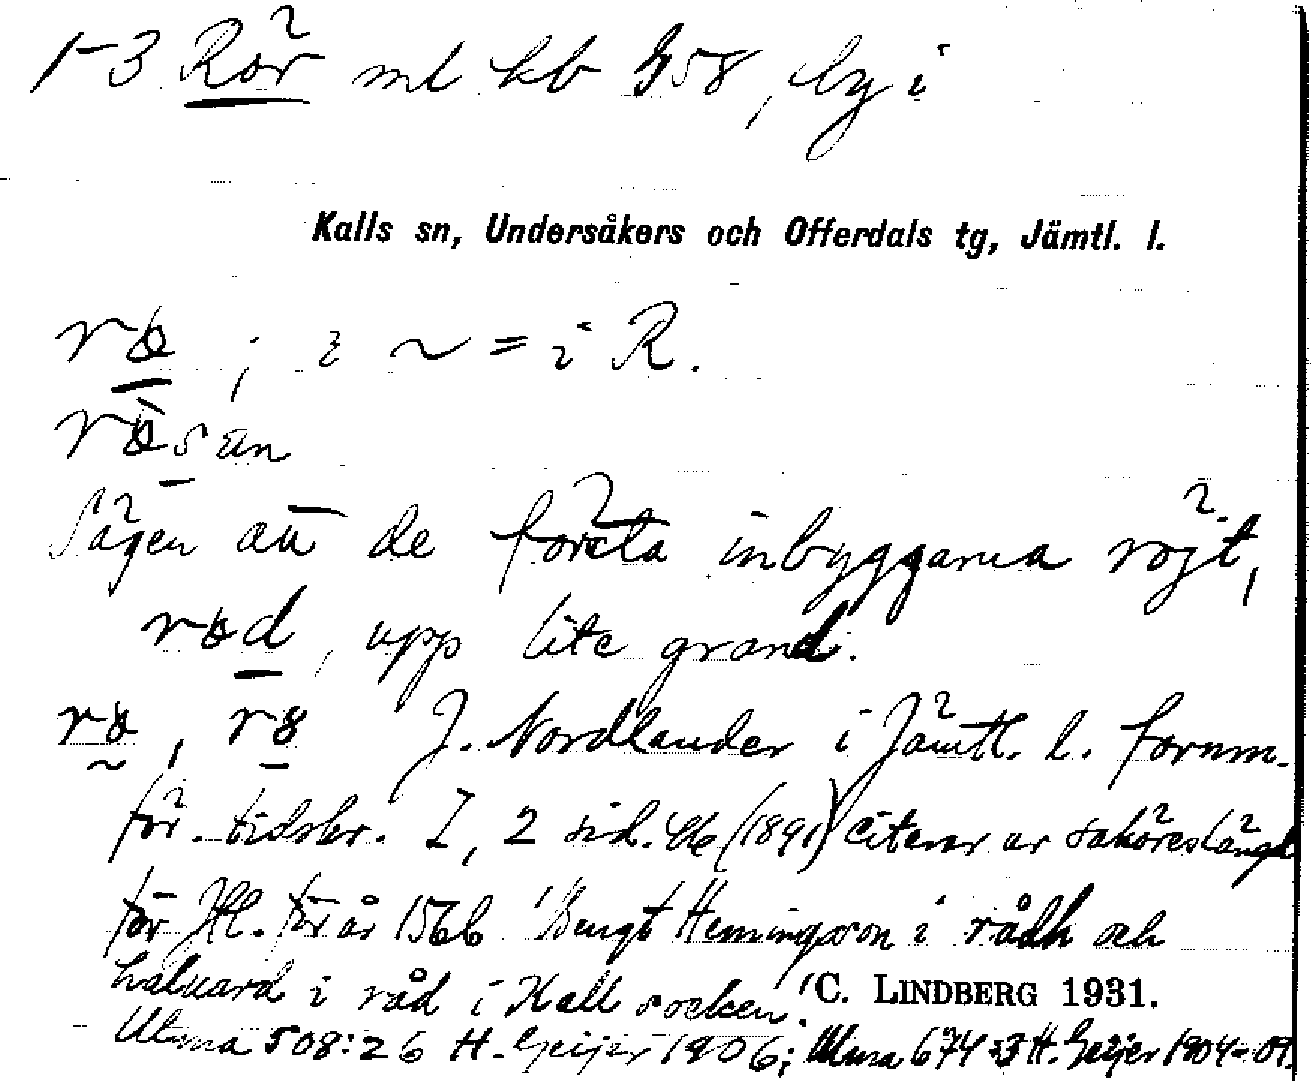 1-3 Rör ml kb G58, by i
Kalls sn, Undersåkers och Offerdals tg, Jämtl. l.
rø ; i ~ = i R.
rø̀san
Sägen att de första inbyggarna röjt,
rød, upp lite grand.
rø, r8 J. Nordlander i Jämtl. l. fornm.
för. tidskr. I, 2 sid. 46 (1891) citerar ur saköreslängd
för Jtl. för år 1566 'Bengt Hemingsson i rådh och
halvard i råd i Kall socken.'
C. LINDBERG 1931.
Ulma 508:26 H. Geijer 1906; Ulma 674:3 H. Geijer 1904-09.